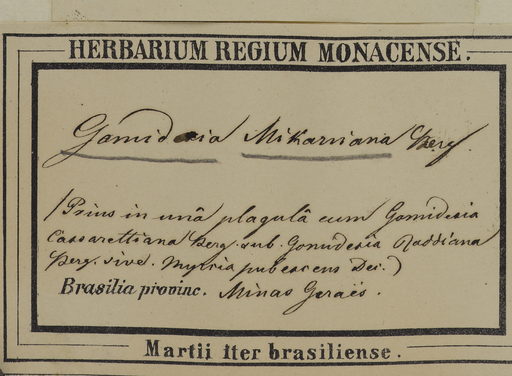 HERBARIUM REGIUM MONACENSE.
Gomidesia Mikaniana Berg.
(Prius in unâ plagulâ cum Gomidesia
Casarettiana Berg. sub. Gomidesia Raddiana
Berg. sive. Myrcia pubescens Dec.)
Brasilia provinc. Minas Geraës.
Martii iter brasiliense.